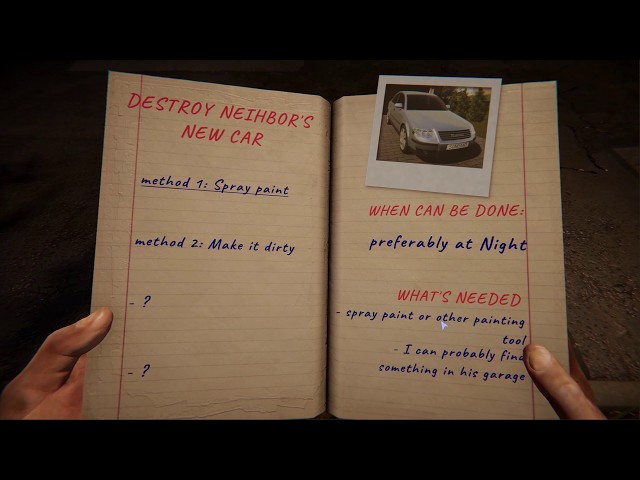 DESTROY NEIHBOR'S
NEW CAR
method 1: Spray paint
method 2: Make it dirty
- ?
- ?
WHEN CAN BE DONE:
preferably at Night
WHAT'S NEEDED
- spray paint or other painting
tool
- I can probably find
something in his garage